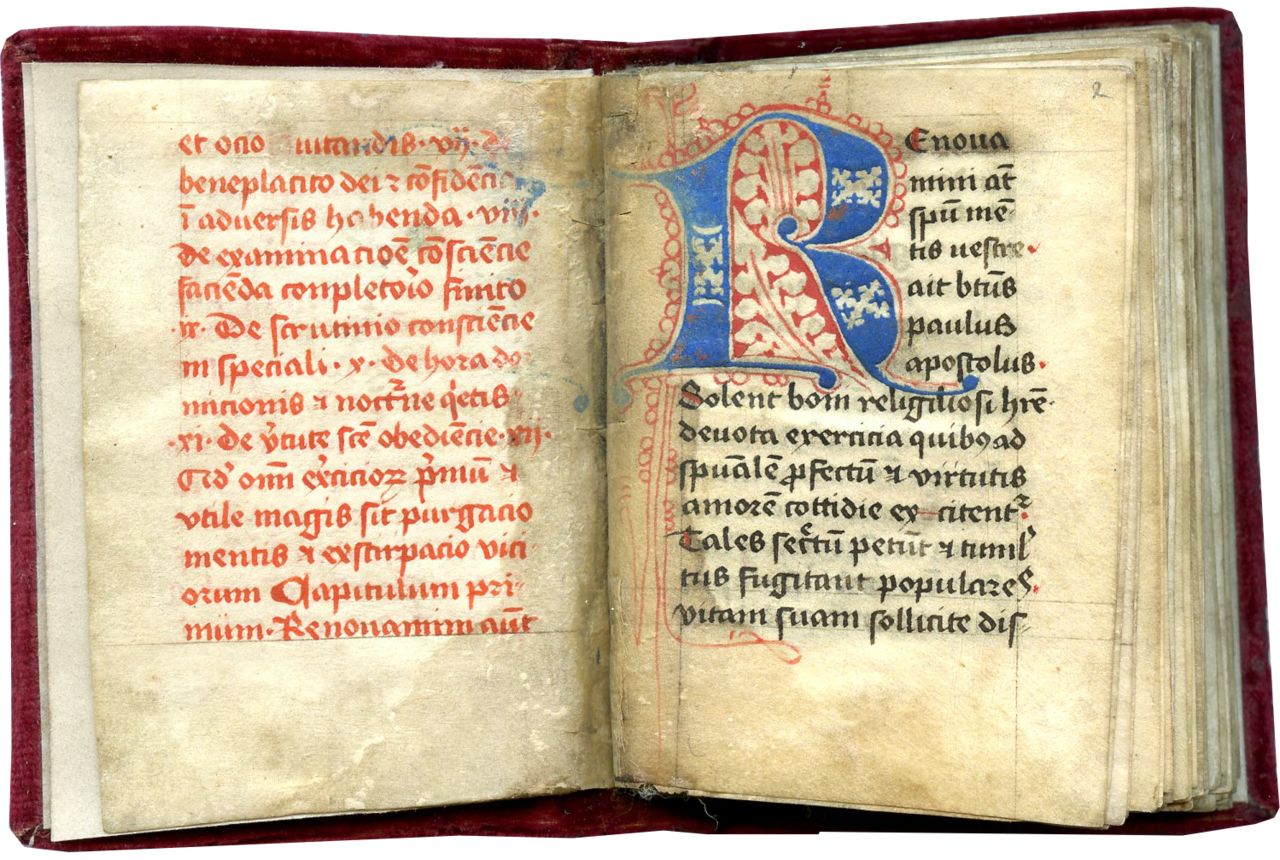 et ocio uitandis · vij · de
beneplacito dei ⁊ cōfidēcia
ī aduersis habenda · viij ·
de examinacioē cōsciēcie
faciēda conpletoīo finito
· ix · De scrutinio consciēcie
in speciali · x · de hora dor
micionis ⁊ noctᷓne qͥetis
· xi · de vᷓtute scē obediēcie · xij ·
Qd̄ om̄i exᷓcicioꝝ pᷓmiū ⁊
vtile magis sit purgacio
mentis ⁊ exstirpacio vici
orum Capitulum pri-
mum · Renouamini aūt
2
REnoua
mini aūt
spū mē-
tis uestre ·
ait btūs
paulus
apostolus ·
Solent boni religiuiosi hr̄e
deuota exercicia quibꝰ ad
spūalē ꝓfectū ⁊ virtutis
amorē cottidie ex-citentᷣ.
Tales secᷓtū petūt ⁊ tumł
tus fugitant populares.
vitam suam sollicite dis-